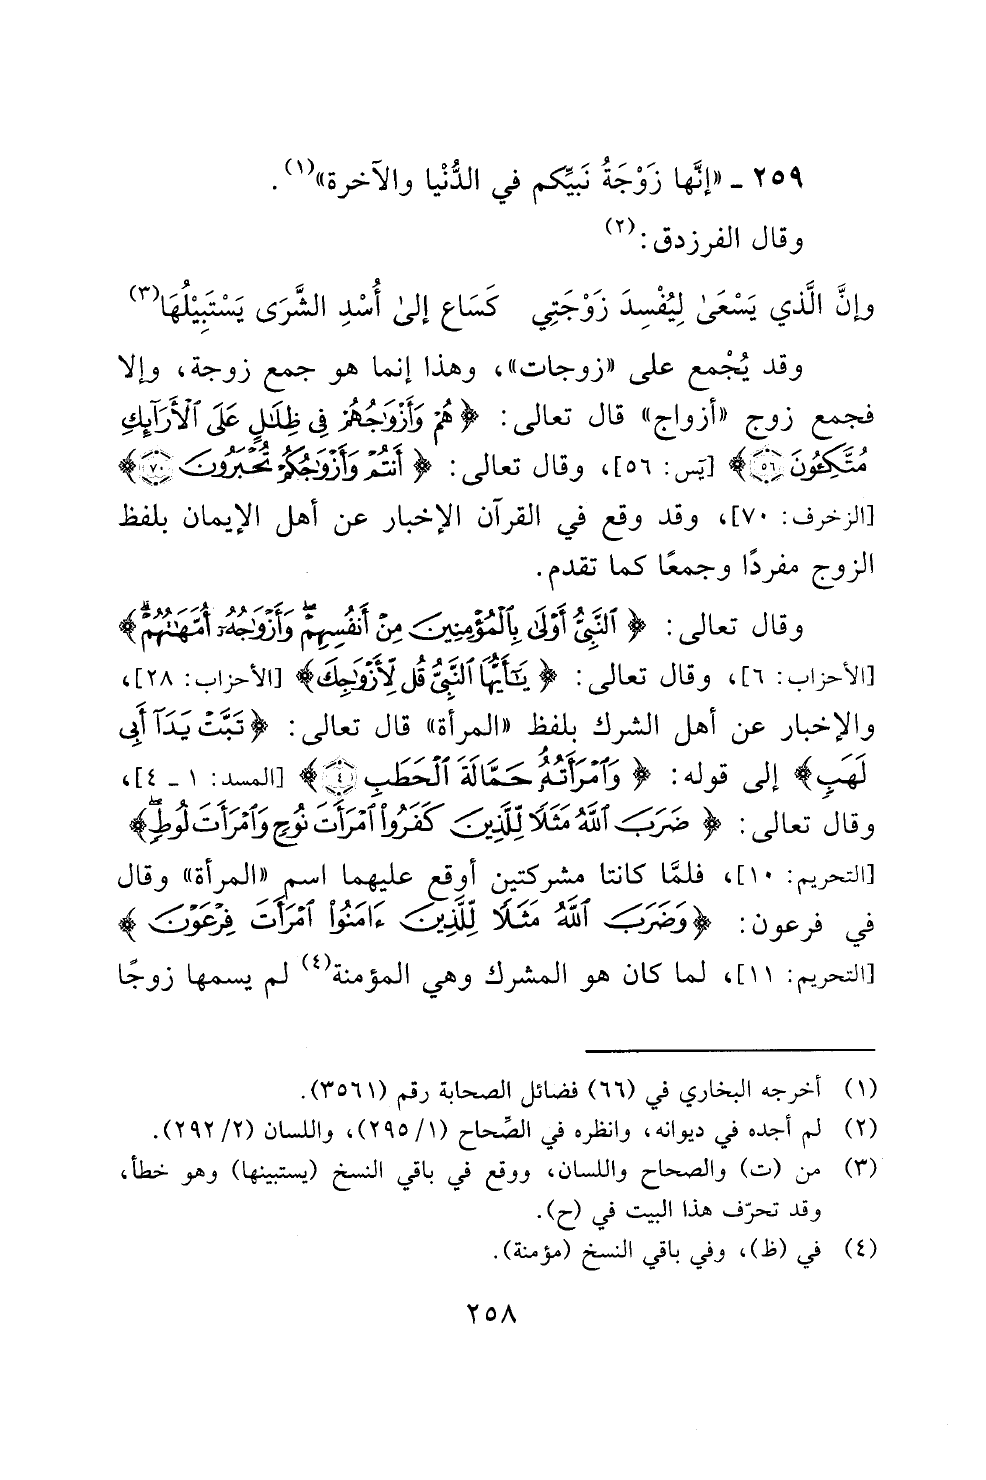 ٢٥٩ ـ «إنَّها زَوْجَةُ نَبيِّكم في الدُّنْيا والآخرة»(١).
وقال الفرزدق:(٢)
وإنَّ الَّذي يَسْعَىٰ لِيُفْسِدَ زَوْجَتِي كَسَاعٍ إلىٰ أُسْدِ الشَّرَى يَسْتَبِيْلُهَا(٣)
وقد يُجْمع على «زوجات»، وهذا إنما هو جمع زوجة، وإلا
فجمع زوج «أزواج» قال تعالى: ﴿هُمْ وَأَزْوَٰجُهُمْ فِى ظِلَٰلٍ عَلَى ٱلْأَرَآئِكِ
مُتَّكِـُٔونَ ٥٦﴾ [يَس: ٥٦]، وقال تعالى: ﴿أَنتُمْ وَأَزْوَٰجُكُمْ تُحْبَرُونَ ٧٠﴾
[الزخرف: ٧٠]، وقد وقع في القرآن الإخبار عن أهل الإيمان بلفظ
الزوج مفردًا وجمعًا كما تقدم.
وقال تعالى: ﴿ٱلنَّبِىُّ أَوْلَىٰ بِٱلْمُؤْمِنِينَ مِنْ أَنفُسِهِمْۖ وَأَزْوَٰجُهُۥٓ أُمَّهَٰتُهُمْۗ﴾
[الأحزاب: ٦]، وقال تعالى: ﴿يَٰٓأَيُّهَا ٱلنَّبِىُّ قُل لِّأَزْوَٰجِكَ﴾ [الأحزاب: ٢٨]،
والإخبار عن أهل الشرك بلفظ «المرأة» قال تعالى: ﴿تَبَّتْ يَدَآ أَبِى
لَهَبٍ﴾ إلى قوله: ﴿وَٱمْرَأَتُهُۥ حَمَّالَةَ ٱلْحَطَبِ ٤﴾ [المسد: ١ ـ ٤]،
وقال تعالى: ﴿ضَرَبَ ٱللَّهُ مَثَلًا لِّلَّذِينَ كَفَرُوا۟ ٱمْرَأَتَ نُوحٍ وَٱمْرَأَتَ لُوطٍۖ﴾
[التحريم: ١٠]، فلمَّا كانتا مشركتين أوقع عليهما اسم «المرأة» وقال
في فرعون: ﴿وَضَرَبَ ٱللَّهُ مَثَلًا لِّلَّذِينَ ءَامَنُوا۟ ٱمْرَأَتَ فِرْعَوْنَ﴾
[التحريم: ١١]، لما كان هو المشرك وهي المؤمنة(٤) لم يسمها زوجًا
(١) أخرجه البخاري في (٦٦) فضائل الصحابة رقم (٣٥٦١).
(٢) لم أجده في ديوانه، وانظره في الصِّحاح (٢٩٥/١)، واللسان (٢٩٢/٢).
(٣) من (ت) والصحاح واللسان، ووقع في باقي النسخ (يستبينها) وهو خطأ،
وقد تحرّف هذا البيت في (ح).
(٤) في (ظ)، وفي باقي النسخ (مؤمنة).
٢٥٨